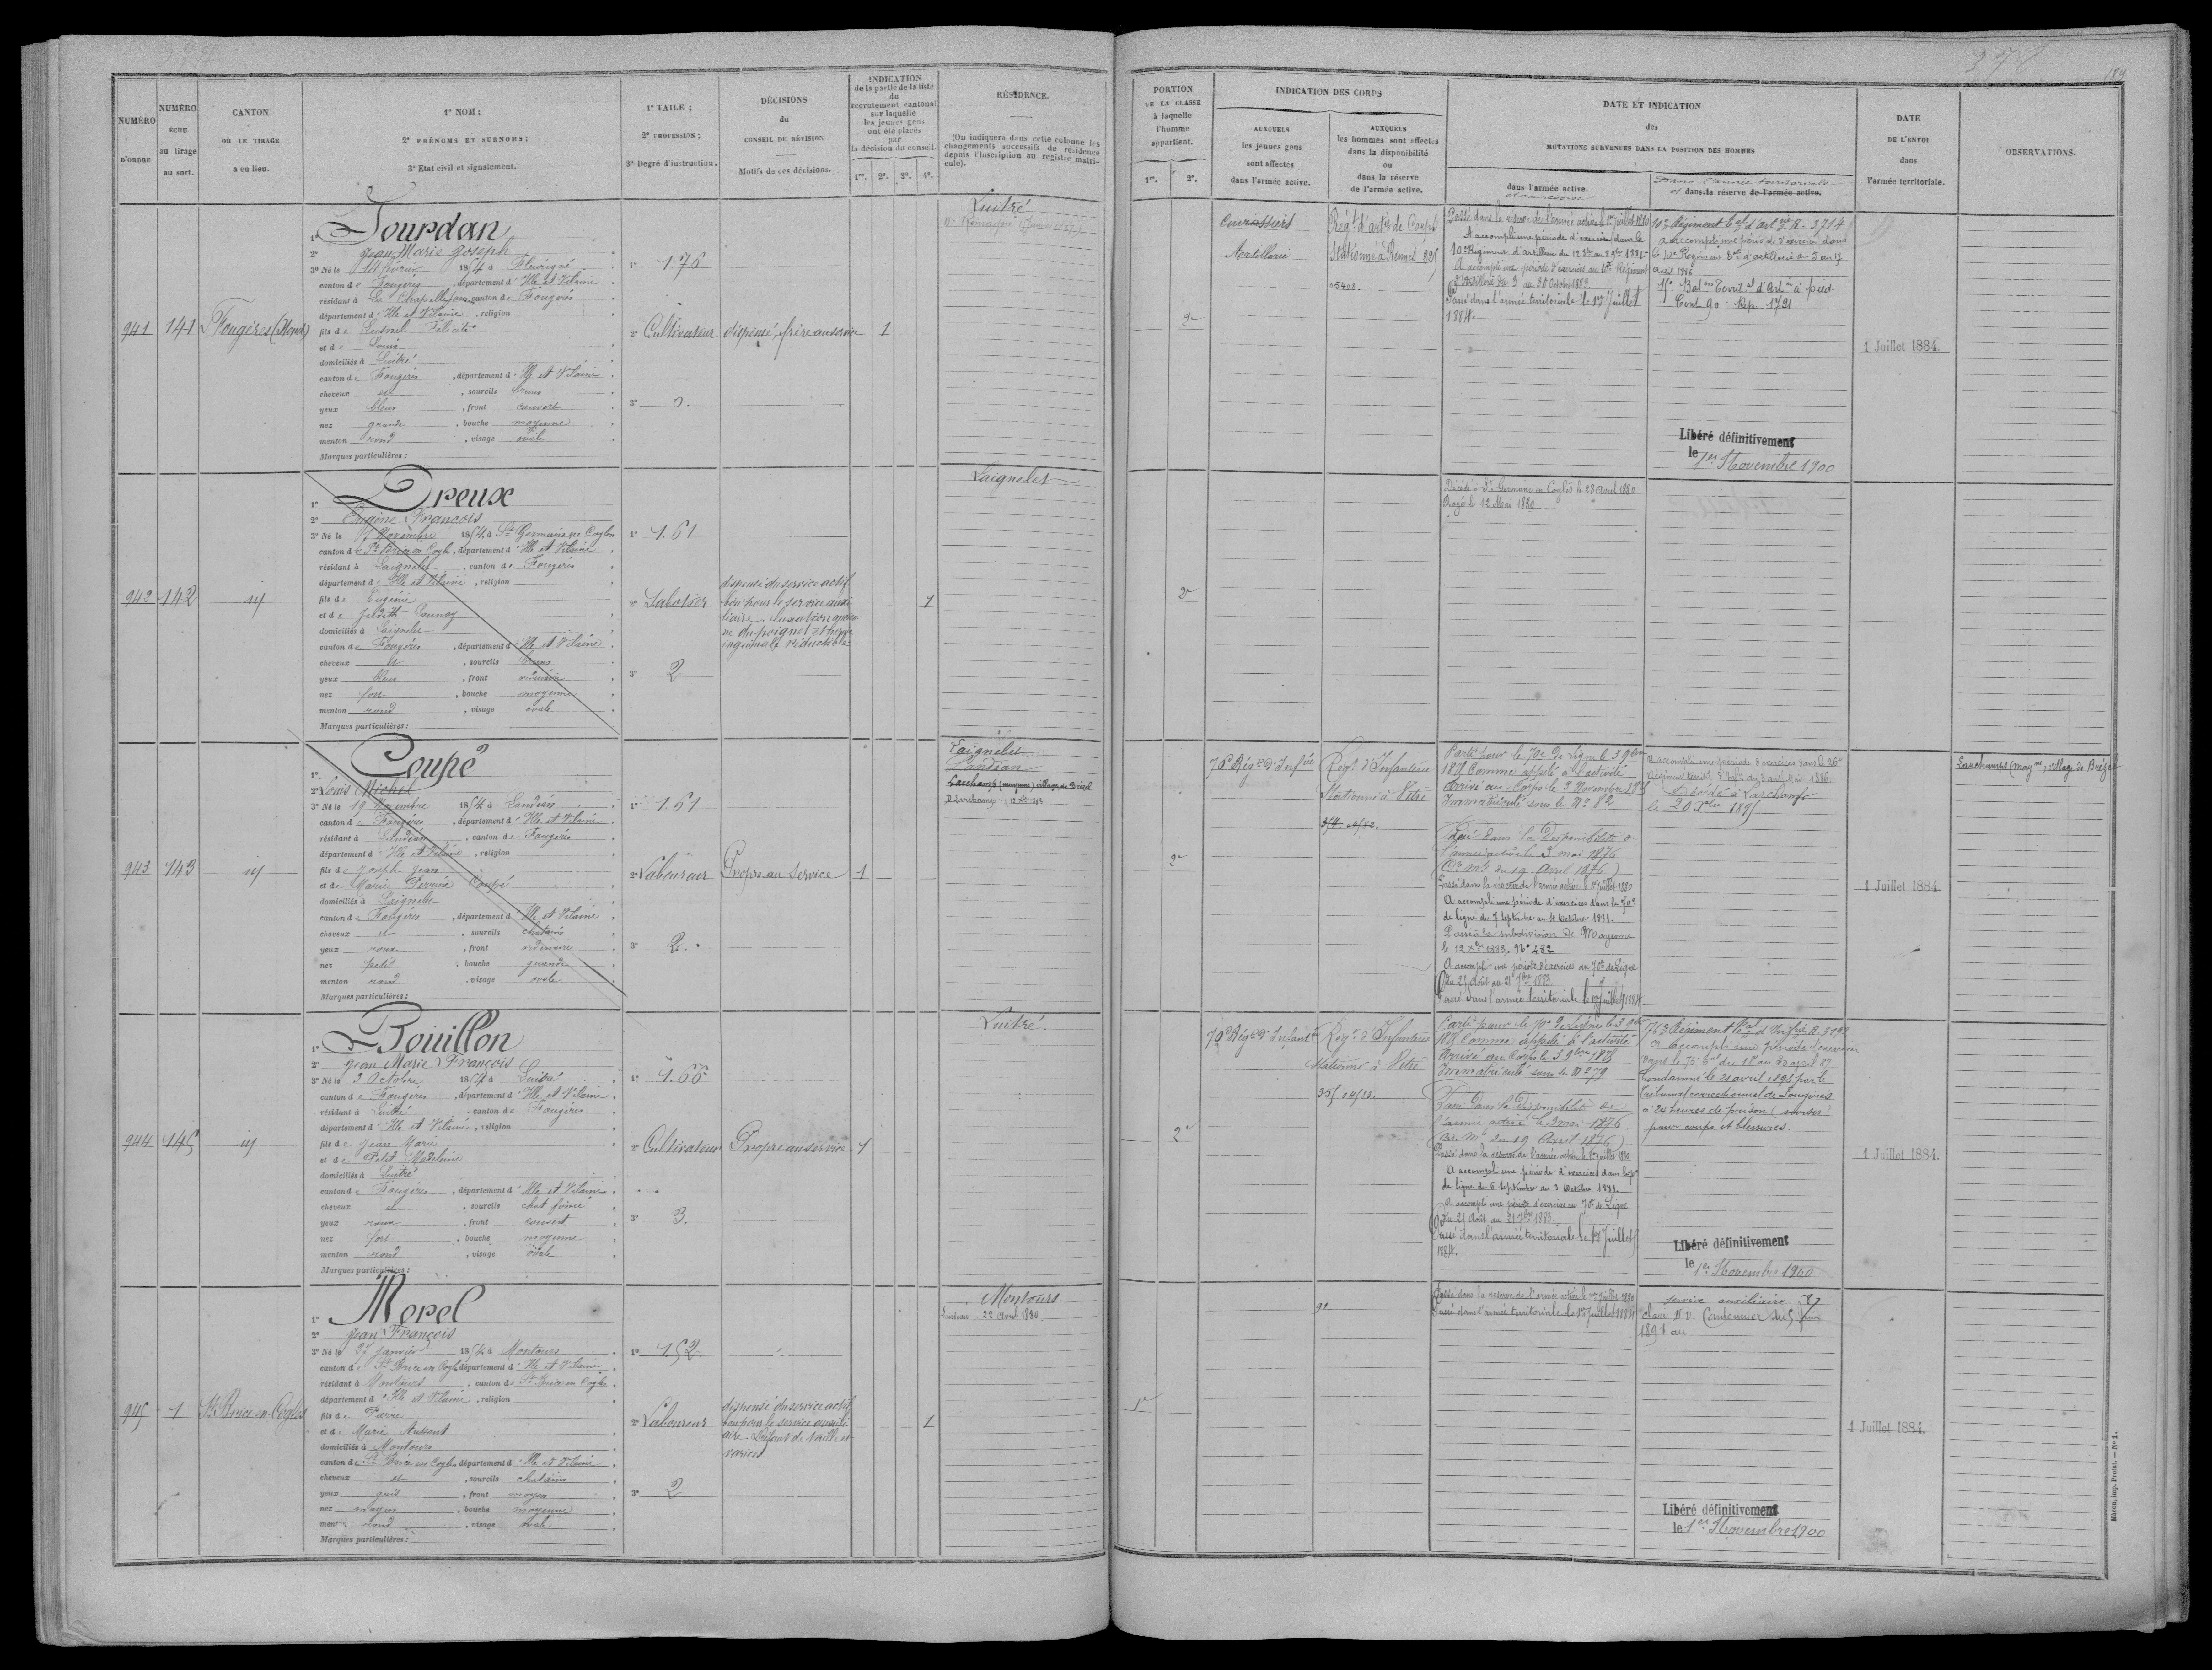 377
NUMÉRO D'ORDRE
NUMÉRO ÉCHU au tirage au sort.
CANTON OÙ LE TIRAGE a eu lieu.
1° NOM;
2° PRÉNOMS ET SURNOMS;
3° Etat civil et signalement.
1° TAILE;
2° PROFESSION;
3° Degré d'instruction.
DÉCISIONS du CONSEIL DE RÉVISION
Motifs de ces décisions.
INDICATION de la partie de la liste du recrutement cantonal sur laquelle les jeunes gens ont été placés par la décision du conseil.
1re. 2e. 3e. 4e.
RÉSIDENCE.
(On indiquera dans cette colonne les changements successifs de résidence depuis l'inscription au registre matricule).
941
141
Fougères (Nord)
1° Jourdan
2° Jean Marie Joseph
3° Né le 14 février 1854 à Fleurigné
canton de Fougères, département d'Ille et Vilaine
résidant à La Chapelle Jans, canton de Fougères
département d'Ille et Vilaine, religion
fils de Félicité
et de Louis
domiciliés à Luitré
canton de Fougères, département d'Ille et Vilaine
cheveux et, sourcils bruns
yeux bleus, front couvert
nez grande, bouche moyenne
menton rond, visage ovale
Marques particulières:
1° 1.76
2° Cultivateur
3° 0.
dispensé, frère au service
1
Luitré
942
142
id
1° Dreux
2° Eugène François
3° Né le 17 Novembre 1854 à St Germain en Coglès
canton de St Brice en Cogl., département d'Ille et Vilaine
résidant à Laignelet, canton de Fougères
département d'Ille et Vilaine, religion
fils de Eugène
et de Judith Launay
domiciliés à Laignelet
canton de Fougères, département d'Ille et Vilaine
cheveux et, sourcils bruns
yeux bleus, front ordinaire
nez fort, bouche moyenne
menton rond, visage ovale
Marques particulières:
1° 1.61
2° Sabotier
3° 2
dispensé du service actif
bon pour le service auxi-
liaire. Luxation
du poignet et hernie
inguinale réductible
1
Laignelet
943
143
id
1° Coupé
2° Louis Michel
3° Né le 19 Novembre 1854 à Landéan
canton de Fougères, département d'Ille et Vilaine
résidant à Landéan, canton de Fougères
département d'Ille et Vilaine, religion
fils de Joseph Jean
et de Marie Perrine Coupé
domiciliés à Laignelet
canton de Fougères, département d'Ille et Vilaine
cheveux et, sourcils châtains
yeux roux, front ordinaire
nez petit, bouche grande
menton rond, visage ovale
Marques particulières:
1° 1.61
2° Laboureur
3° 2
Propre au service
1
Laignelet
Landéan
Larchamp (mayenne) village de Brézel
944
145
id
1° Bouillon
2° Jean Marie François
3° Né le 3 Octobre 1854 à Luitré
canton de Fougères, département d'Ille et Vilaine
résidant à Luitré, canton de Fougères
département d'Ille et Vilaine, religion
fils de Jean Marie
et de Petit Madeleine
domiciliés à Luitré
canton de Fougères, département d'Ille et Vilaine
cheveux et, sourcils chat. foncé
yeux roux, front couvert
nez fort, bouche moyenne
menton rond, visage ovale
Marques particulières:
1° 1.66
2° Cultivateur
3° 3.
Propre au service
1
Luitré.
945
1
St Brice-en-Coglès
1° Morel
2° Jean François
3° Né le 27 janvier 1854 à Montours
canton de St Brice en Cogl. département d'Ille et Vilaine
résidant à Montours, canton de St Brice en Cogles
département d'Ille et Vilaine, religion
fils de Pierre
et de Marie Aussant
domiciliés à Montours
canton de St Brice en Cogles département d'Ille et Vilaine
cheveux et, sourcils châtains
yeux gris, front moyen
nez moyen, bouche moyenne
menton rond, visage ovale
Marques particulières:
1° 1.52
2° Laboureur
3° 2
dispensé du service actif
bon pour le service auxili-
aire. Défaut de taille et
varices.
1
Montours.
22 Avril 1880.
378
189
PORTION DE LA CLASSE à laquelle l'homme appartient.
1re. 2e.
INDICATION DES CORPS
AUXQUELS les jeunes gens sont affectés dans l'armée active.
AUXQUELS les hommes sont affectés dans la disponibilité ou dans la réserve de l'armée active.
DATE ET INDICATION des MUTATIONS SURVENUES DANS LA POSITION DES HOMMES
dans l'armée active.
et sa réserve
Dans l'armée territoriale
et dans la réserve de l'armée active.
DATE DE L'ENVOI dans l'armée territoriale.
OBSERVATIONS.
2e
Cuirassiers
Artillerie
Régt d'artie de Corps
Stationné à Rennes
Passé dans la réserve de l'armée active le 1er juillet 1880
A accompli une période d'exercices dans le
10e Régiment d'artillerie du 12 8bre au 8 9bre 1881.
A accompli une période d'exercices au 10e Régiment
d'Artillerie du 3 au 30 Octobre 1883.
Passé dans l'armée territoriale le 1er Juillet
1884.
10e Régiment tal d'Artie R. 3714
a accompli une période d'exercices dans
le 10e Régiment tal d'artillerie du 5 au 17
Avril 1886
Bat on Territal d'Artie à pied.
1 Juillet 1884.
Libéré définitivement
le 1er Novembre 1900
2e
Décédé à St Germain en Coglès le 28 Avril 1880
Rayé le 12 Mai 1880
2e
70e Régt d'Infie
Régt d'Infanterie
Stationné à Vitré
Parti pour le 70e de ligne le 3 9bre
1875 Comme appelé à l'activité
Arrivé au Corps le 3 Novembre 1875
Immatriculé sous le N° 82
Passé dans la Disponibilité de
l'armée active le 3 mai 1876
(Cre Mle du 19 Avril 1876)
Passé dans la réserve de l'armée active le 1er juillet 1880
A accompli une période d'exercices dans le 70e
de ligne du 7 Septembre au 4 Octobre 1881.
Passé à la subdivision de Mayenne
le 12 Xbre 1883. N° 482
A accompli une période d'exercices au 70e de Ligne
Du 25 Août au 21 7bre 1883.
Passé dans l'armée territoriale le 1er juillet 1884
A accompli une période d'exercices dans le 26e
Régiment territl d'Infie du 3 au Mai 1886.
Décédé à Larchamp
le 20 Xbre 1895
1 Juillet 1884.
Larchamps (mayne) village de Brézel
2e
70e Régt d'Infanterie
Régt d'Infanterie
Stationné à Vitré
Parti pour le 70e de Ligne le 3 9bre
1875 Comme appelé à l'activité
Arrivé au Corps le 3 9bre 1875
Immatriculé sous le N° 79
Passé dans la Disponibilité de
l'armée active le 3 mai 1876
(Cre Mle du 19 Avril 1876)
Passé dans la réserve de l'armée active le 1er juillet 1880
A accompli une période d'exercices dans le 70e
de ligne du 6 Septembre au 3 Octobre 1881.
A accompli une période d'exercices au 70e de Ligne
Du 25 Août au 21 7bre 1883.
Passé dans l'armée territoriale le 1er Juillet
1884.
a accompli une période d'exercices
Condamné le 21 avril 1898 par le
Tribunal correctionnel de Fougères
à 24 heures de prison (sursis)
pour coups et blessures.
1 Juillet 1884.
Libéré définitivement
le 1er Novembre 1900
1e
91
Passé dans la réserve de l'armée active le 1er juillet 1880
Passé dans l'armée territoriale le 1er Juillet 1884
service auxiliaire
1 Juillet 1884.
Libéré définitivement
le 1er Novembre 1900
Mâcon, imp. Protat. — N° 1.